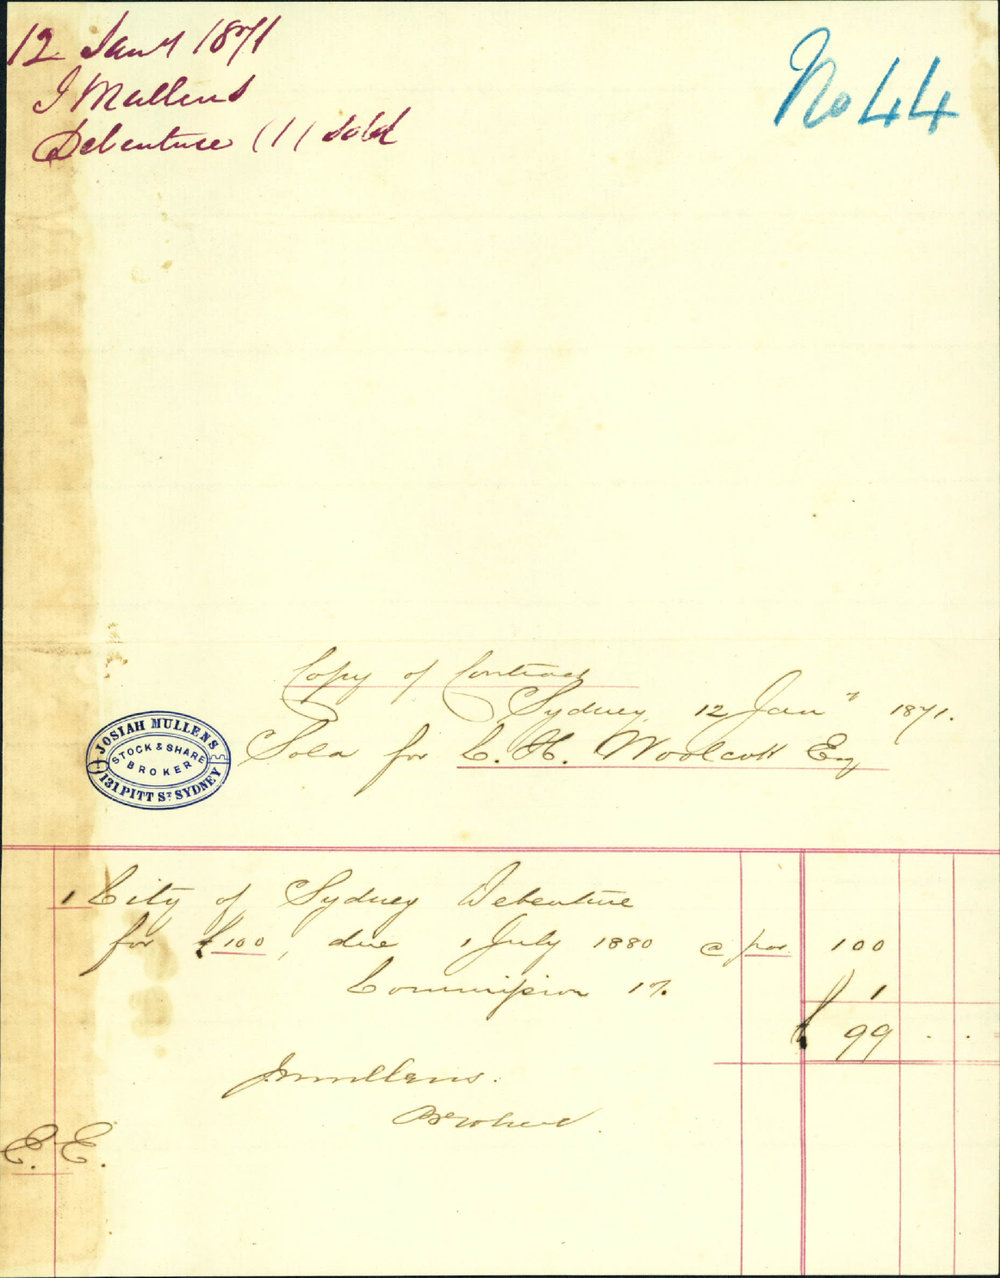 12 Jany 1871
J Mullens
Debenture (1) sold
No 44
Copy of Contract
Sydney 12 Jany 1871.
Sold for C. H. Woolcott Esq
JOSIAH MULLENS
STOCK & SHARE
BROKER
131 PITT ST SYDNEY
1 City of Sydney Debenture
for £100, due 1 July 1880 @ par 100
Commission 1% 1
£ 99 . .
JMullens.
Broker.
E. E.